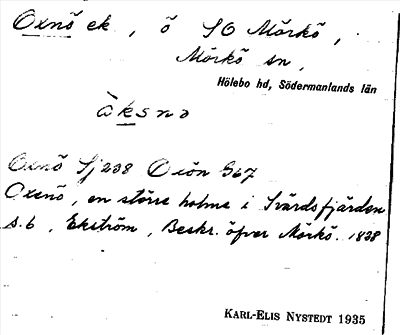 Oxnö ek, ö SO Mörkö,
Mörkö sn,
Hölebo hd, Södermanlands län
àksnə
Oxnö Sj238 Oxön G67
Oxenö, en större holme i Svärdsfjärden
s. 6, Ekström, Beskr. öfver Mörkö. 1828
KARL-ELIS NYSTEDT 1935